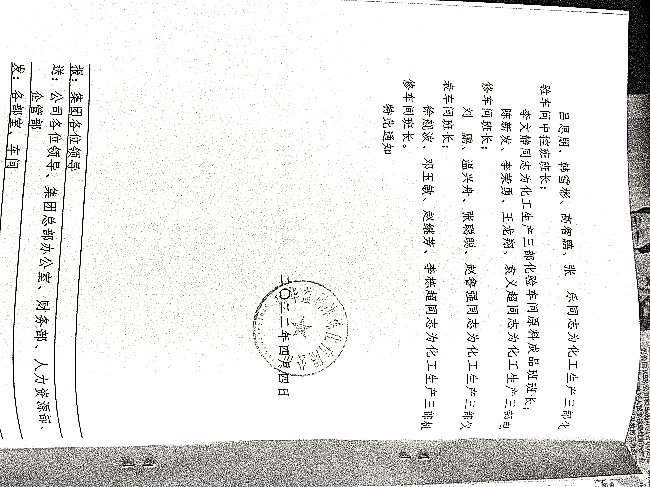 吕思明、韩雪彬、高智璐、张 乐同志为化工生产三部化
验车间中控班班长；
李文静同志为化工生产三部化验车间原料成品班班长；
陈新发、李荣勇、王龙翔、袁义超同志为化工生产三部
修车间班长；
刘 鹏、温兴舟、张聪聪、赵鲁强同志为化工生产三部
表车间班长；
徐超波、邓玉敏、赵继芳、李棋超同志为化工生产三部机
修车间班长。
特此通知
二〇二二年四月四日
报：集团各位领导
送：公司各位领导、集团总部办公室、财务部、人力资源部、
企管部
发：各部室、车间